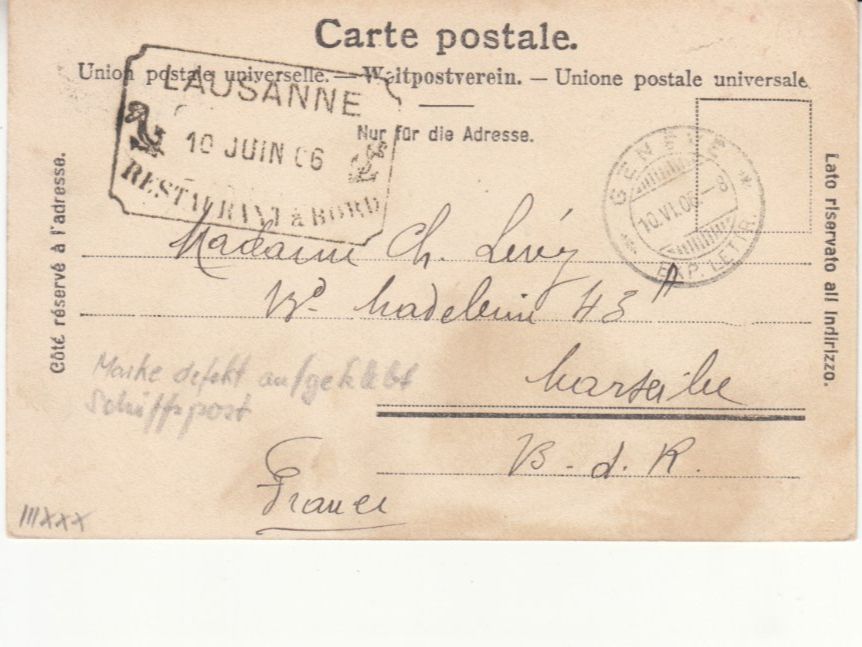 Carte postale.
Union postale universelle. — Weltpostverein. — Unione postale universale
Nur für die Adresse.
LAUSANNE
10 JUIN 06
RESTAURANT à BORD
GENÈVE
10.VI.06.–8
EXP. LETTR.
Côté réservé à l'adresse.
Lato riservato all indirizzo.
Madame Ch. Levy
Bd. Madeleine 43 A
Marseille
B. d. R.
France
Marke defekt aufgeklebt
Schiffspost
IIIXXX